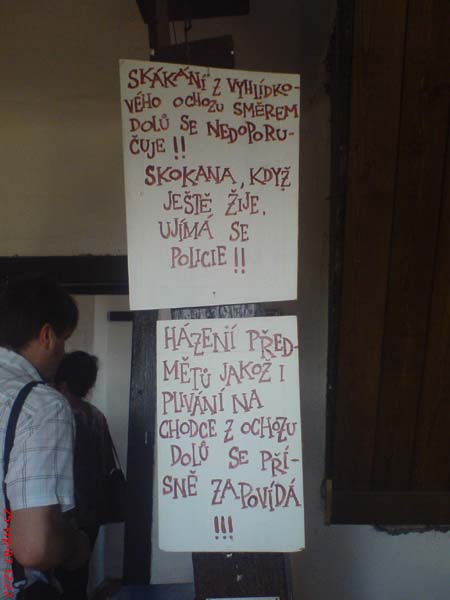 SKÁKÁNÍ Z VYHLÍDKO-
VÉHO OCHOZU SMĚREM
DOLŮ SE NEDOPORU-
ČUJE !!
SKOKANA, KDYŽ
JEŠTĚ ŽIJE,
UJÍMÁ SE
POLICIE !!
HÁZENÍ PŘED-
MĚTŮ JAKOŽ I
PLIVÁNÍ NA
CHODCE Z OCHOZU
DOLŮ SE PŘÍ-
SNĚ ZAPOVÍDÁ
!!!